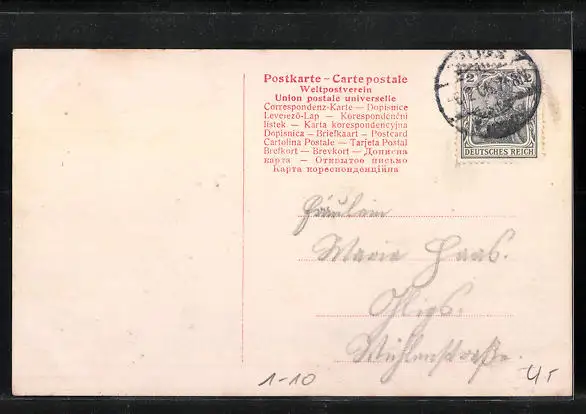 Postkarte – Carte postale
Weltpostverein
Union postale universelle
Correspondenz-Karte – Dopisnice
Levelező-Lap – Korespondenční
lístek – Karta korespondencyjna
Dopisnica – Briefkaart – Postcard
Cartolina Postale – Tarjeta Postal
Brefkort – Brevkort – Дописна
карта – Открытое письмо
Карта кореспонденційна
2
DEUTSCHES REICH
Fräulein
Maria Haas.
Ohligs.
Mühlenstraße.
1-10